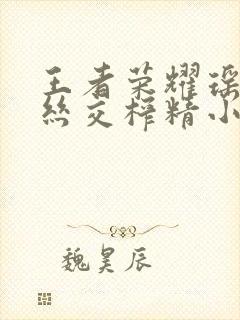 王者荣耀瑶
丝交榨精小
魏昊辰